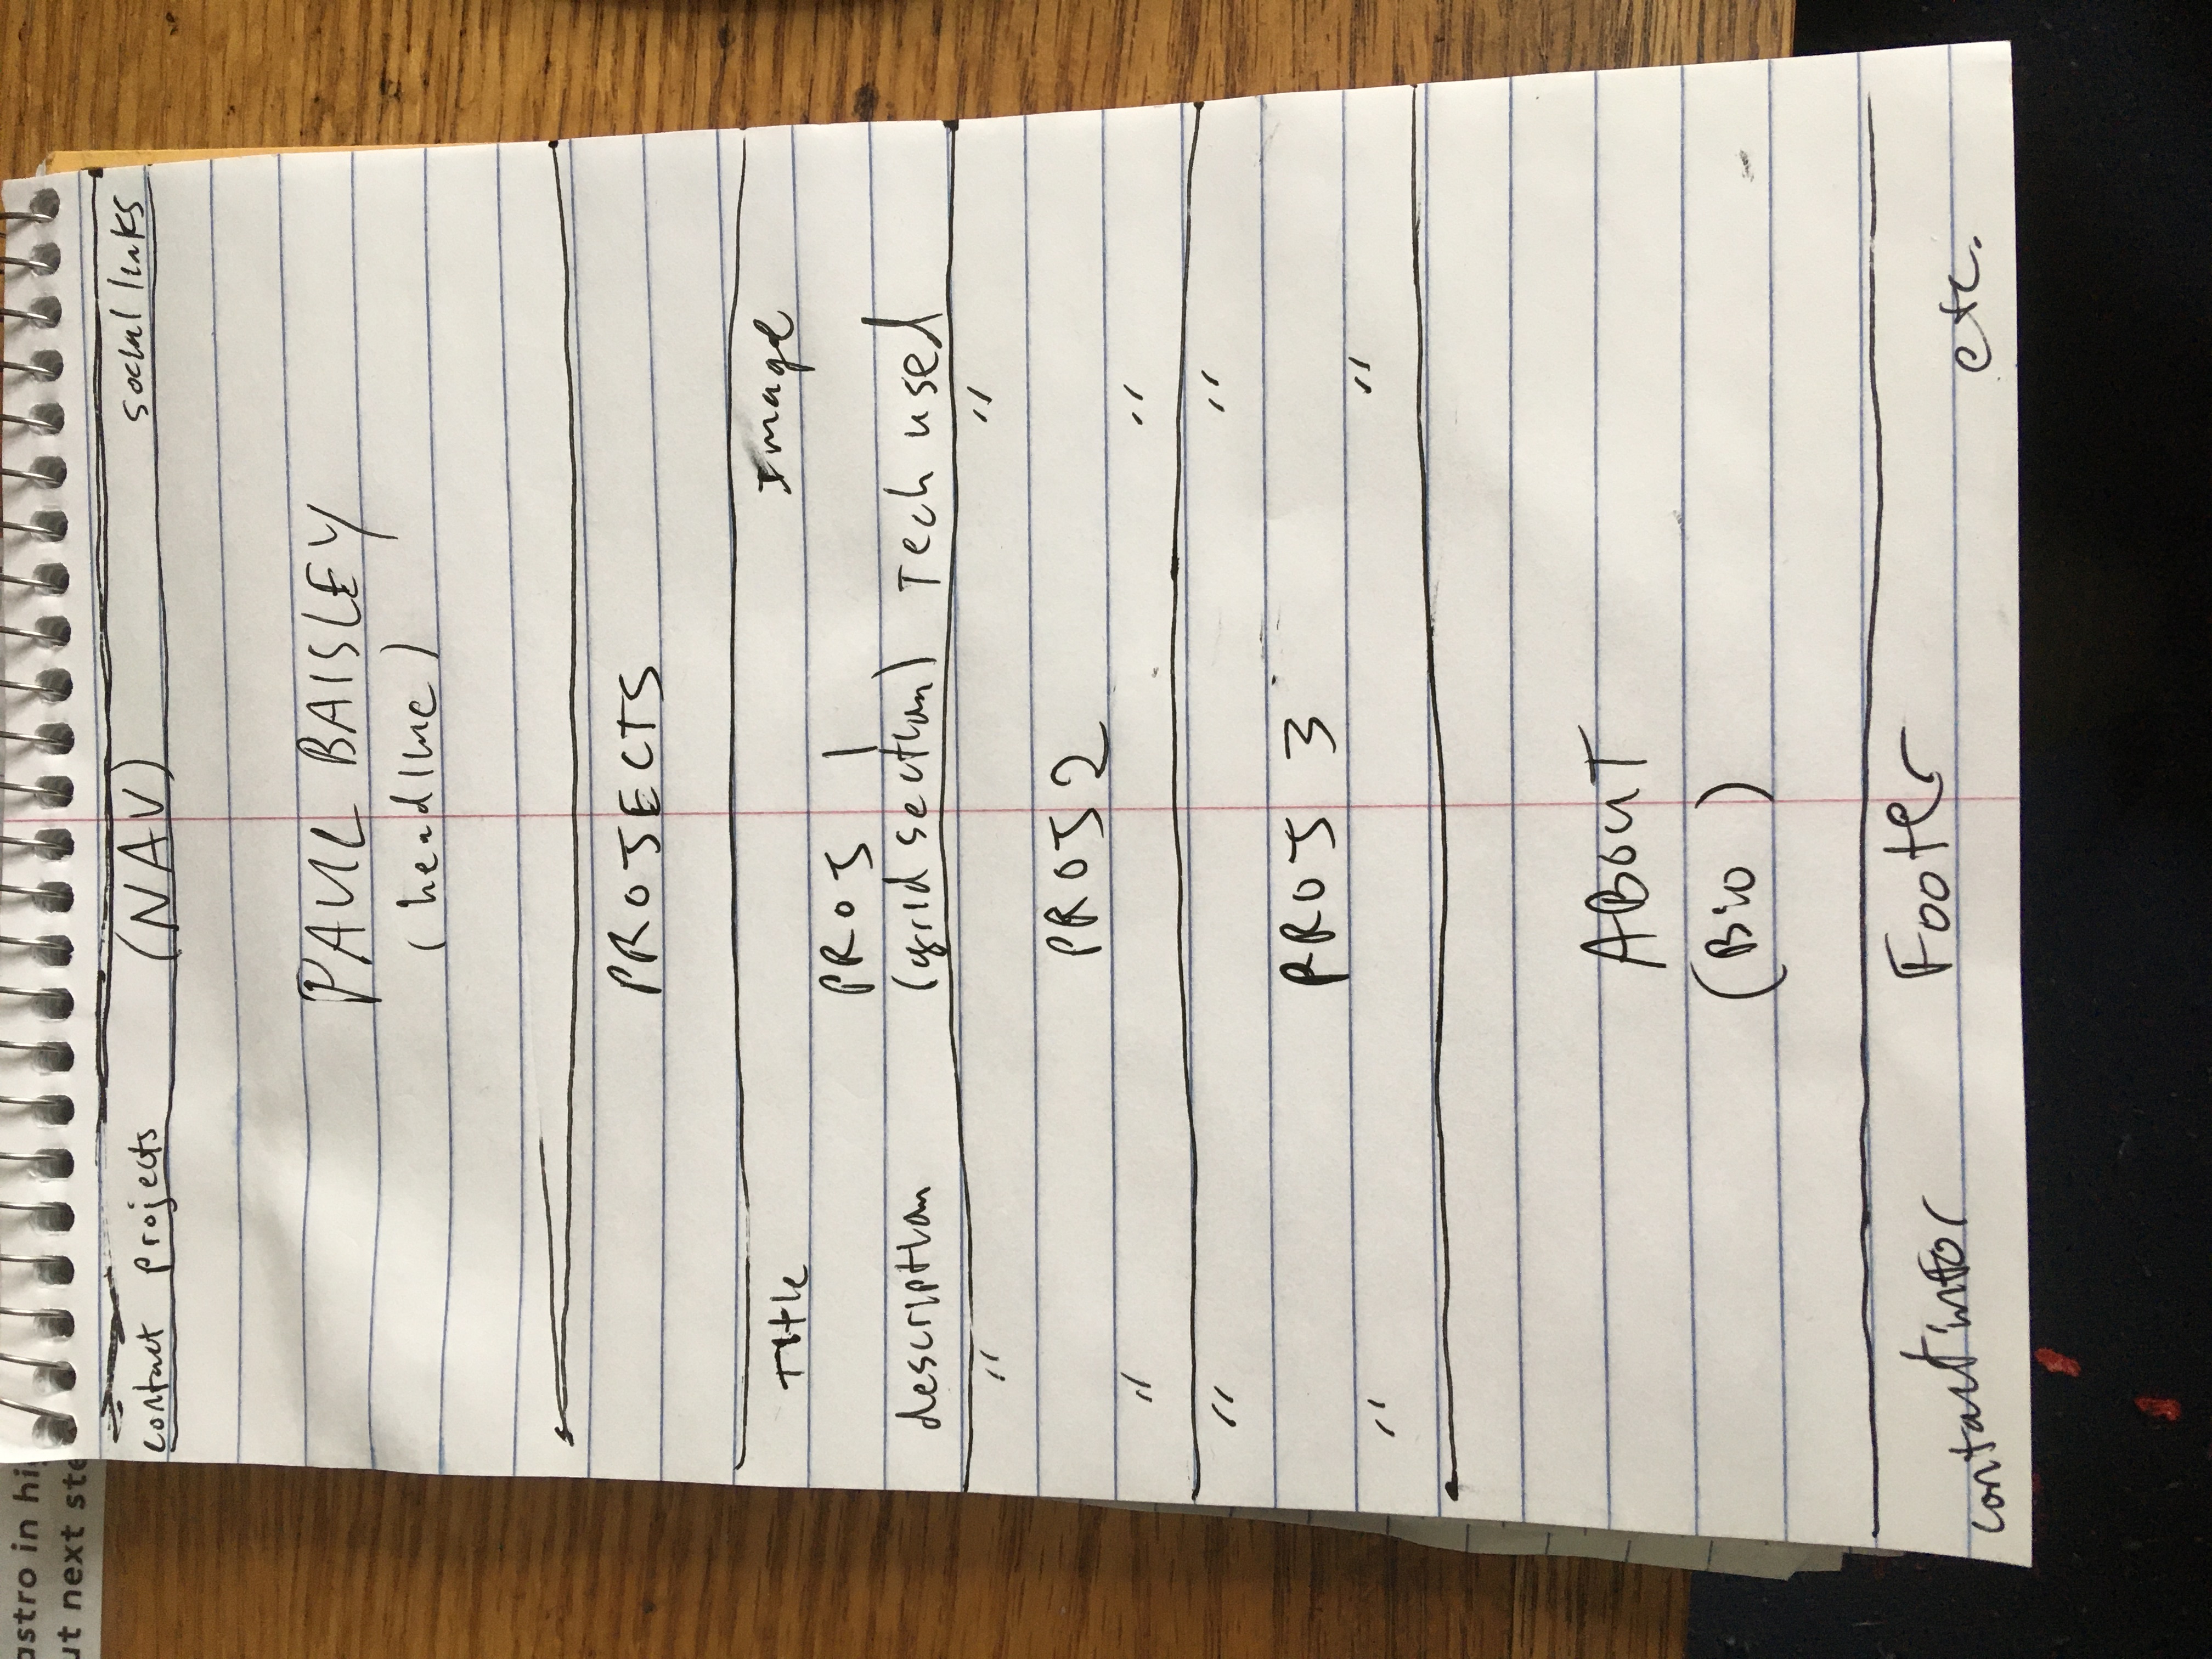 astro in hi
ut next ste
contact projects (NAV) social links
PAUL BAISLEY
(headline)
PROJECTS
Title Image
PROJ 1
description (grid section) Tech used
" "
PROJ 2
" "
" "
PROJ 3
" "
ABOUT
(Bio )
Footer
contact infor etc.